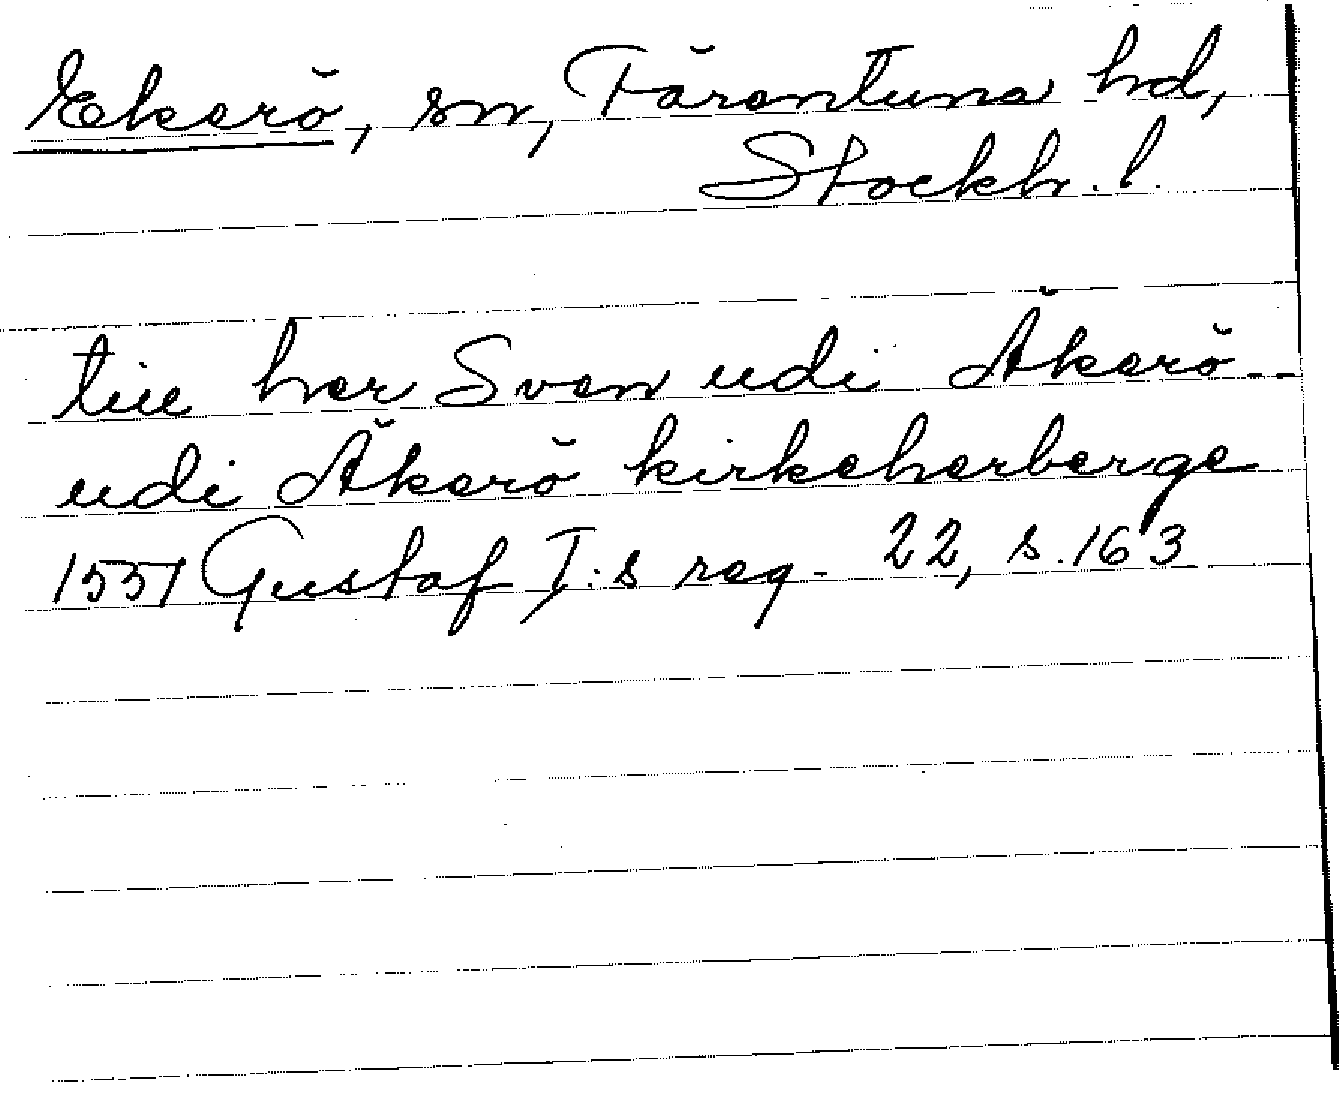 Ekerö, sn, Färentuna hd,
Stockh. l.
till her Sven udi Äkerö --
udi Äkerö kirkeherberge
1551 Gustaf I:s reg. 22, s. 163